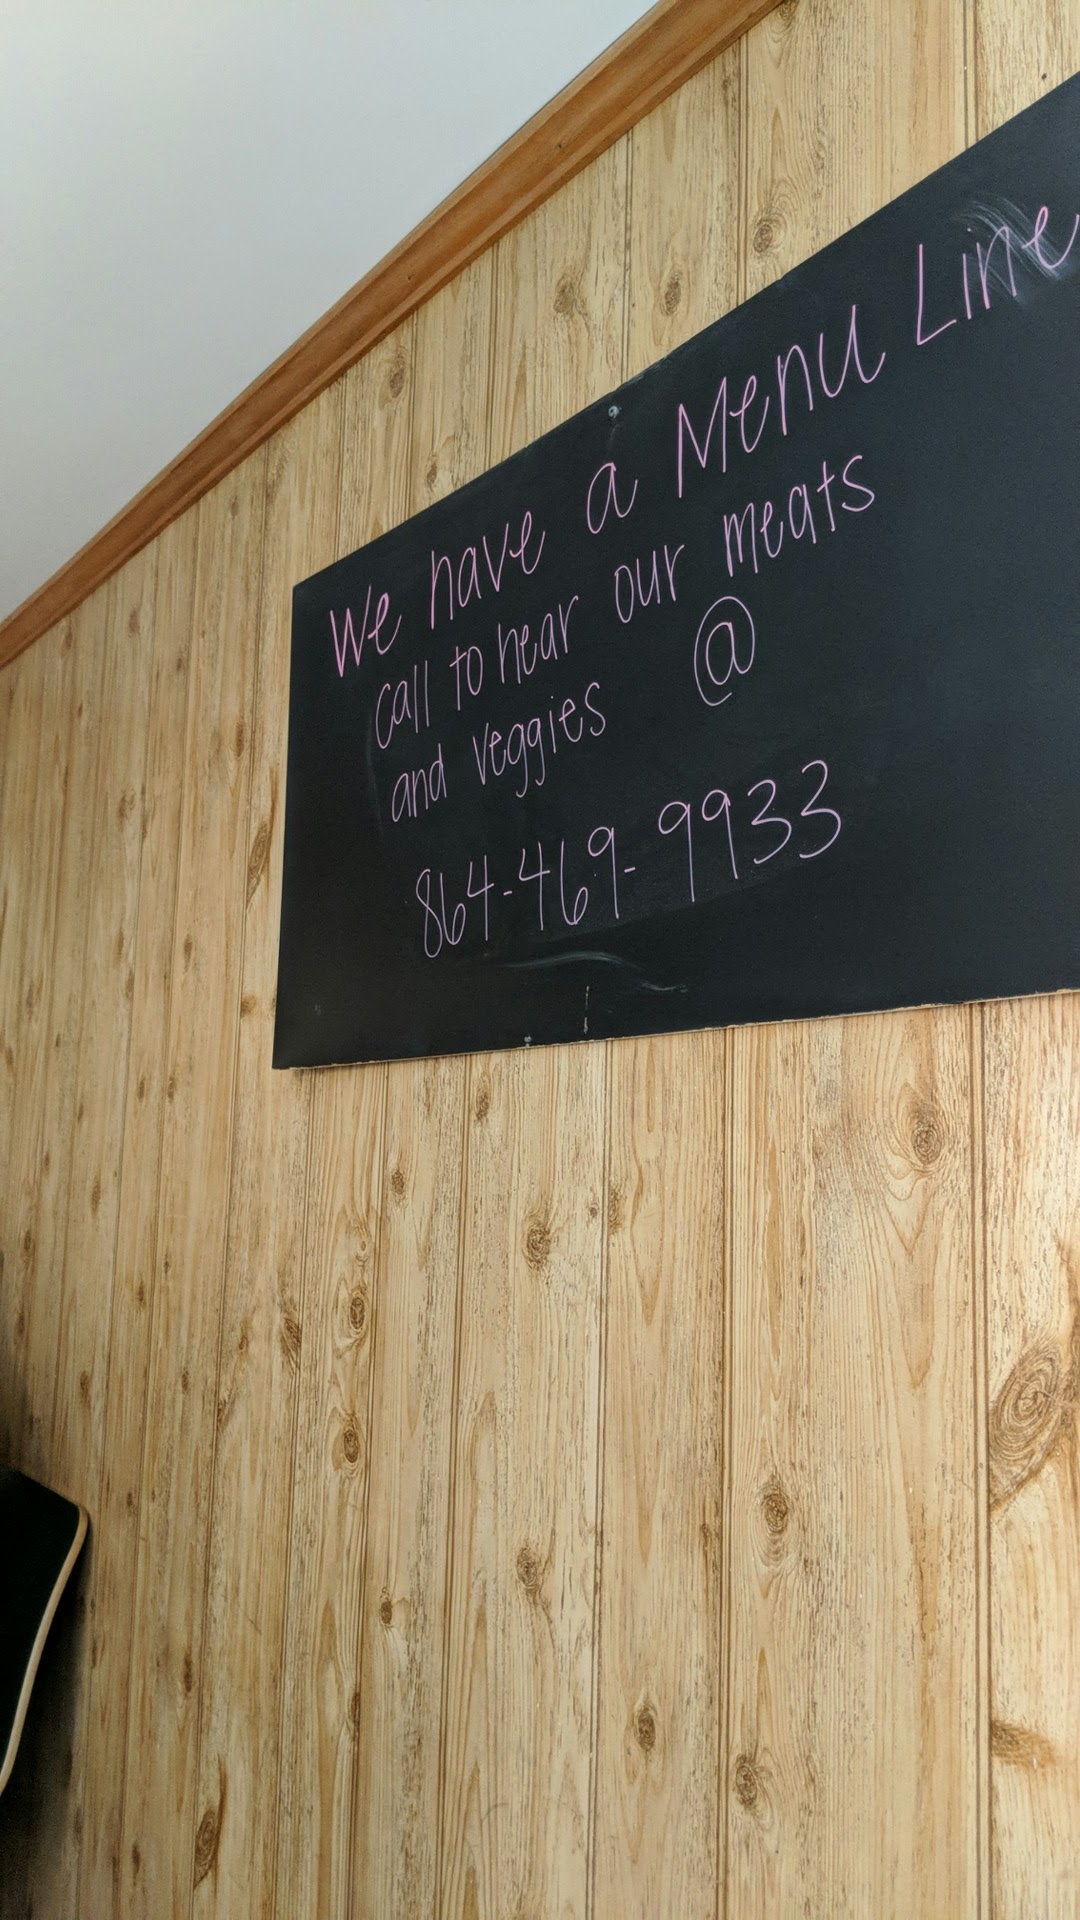 We have a Menu Line
call to hear our meats
and veggies @
864-469-9933